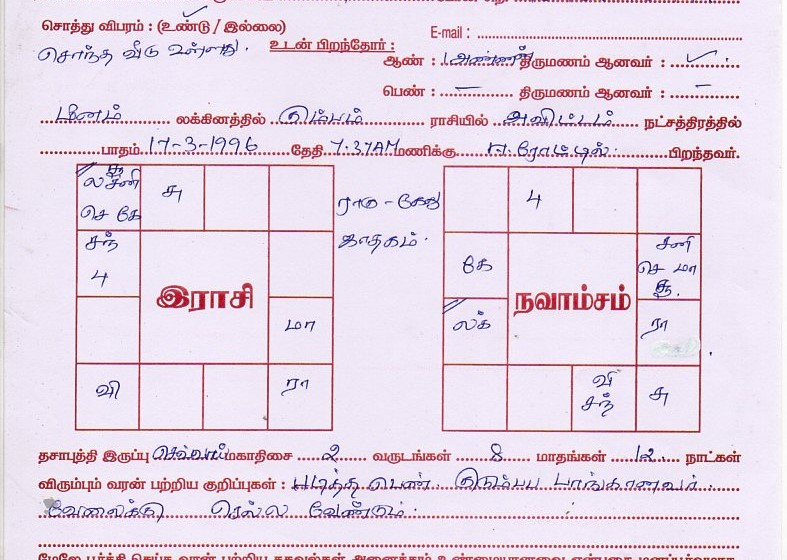 சொத்து விபரம் : (உண்டு / இல்லை)
E-mail :
சொந்த வீடு உள்ளது.
உடன் பிறந்தோர் :
ஆண் : 1 அண்ணன் திருமணம் ஆனவர் : ✓
பெண் : — திருமணம் ஆனவர் : —
மீனம் லக்கினத்தில் கும்பம் ராசியில் அவிட்டம் நட்சத்திரத்தில்
பாதம் 17-3-1996 தேதி 7.37AM மணிக்கு பிறந்தவர்.
சூ
ல சனி
செ கே
சு
சந்
4
இராசி
மா
வி
ரா
ராகு - கேது
ஜாதகம்.
4
கே
சனி
செ மா
சூ.
நவாம்சம்
லக்
ரா
வி
சந்
சு
தசாபுத்தி இருப்பு செவ்வாய் மகாதிசை 2 வருடங்கள் 8 மாதங்கள் 12 நாட்கள்
விரும்பும் வரன் பற்றிய குறிப்புகள் : படித்த பெண். குடும்ப பாங்கானவர்
வேலைக்கு செல்ல வேண்டும்.